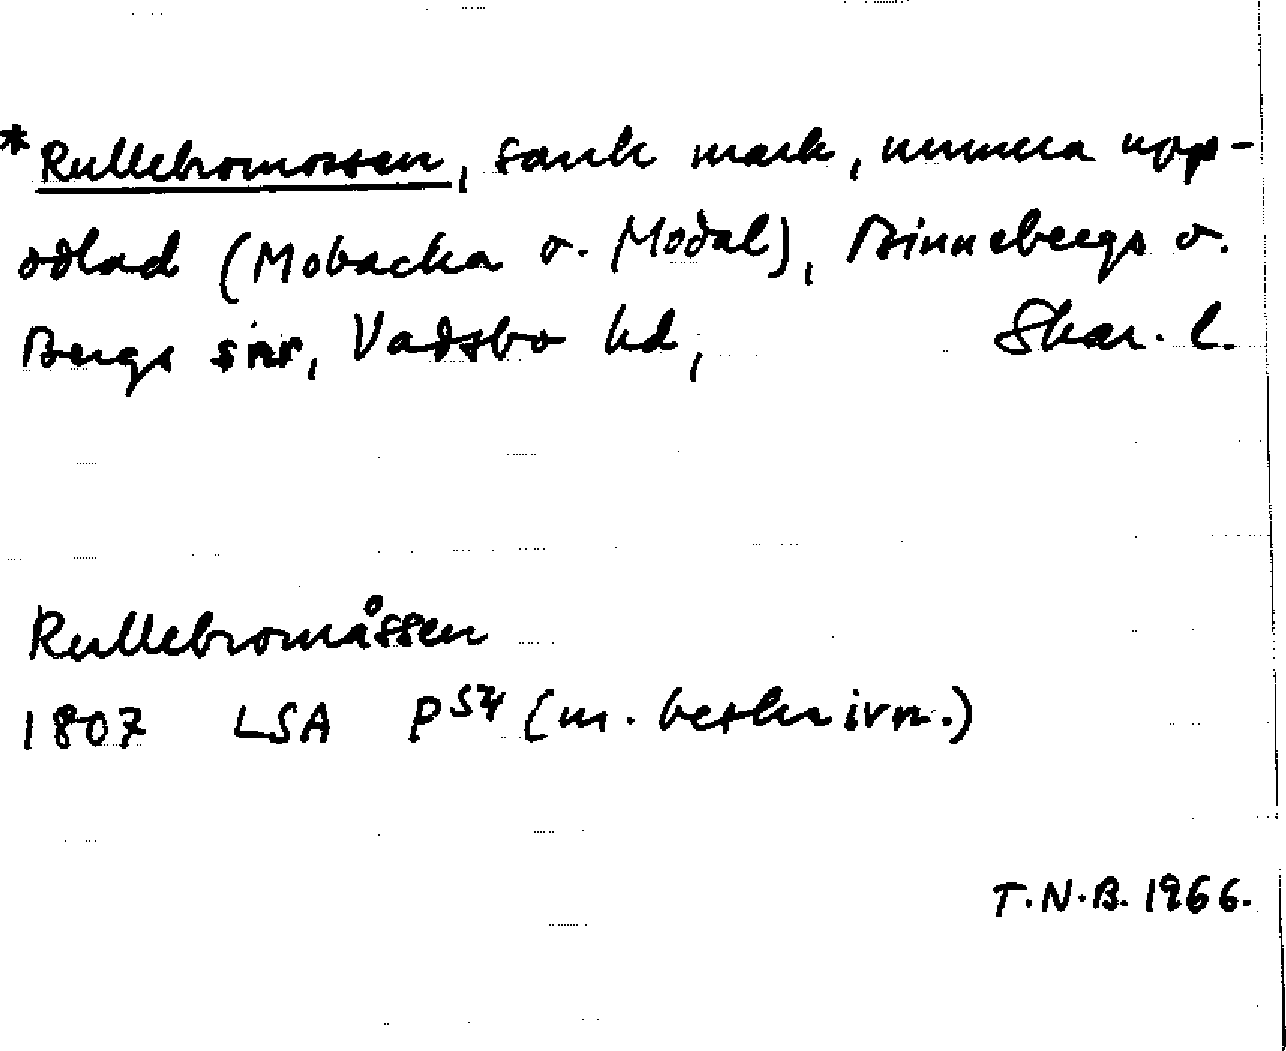 *Rullebromossen, sank mark, numera upp-
odlad (Mobacka o. Modal), Binnebergs o.
Bergs snr, Vadsbo hd, Skar. l.
Rullebromåssen
1807 LSA P54 (m. beskrivn.)
T.N.B. 1966.